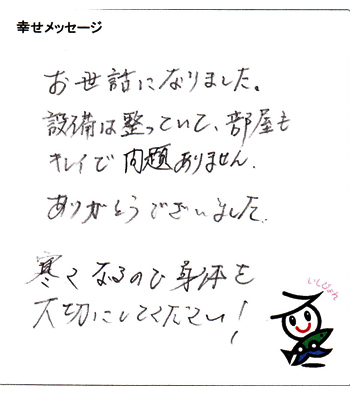 幸せメッセージ
お世話になりました。
設備は整っていて、部屋も
キレイで問題ありません.
ありがとうございました.
寒くなるので身体を
大切にしてください!